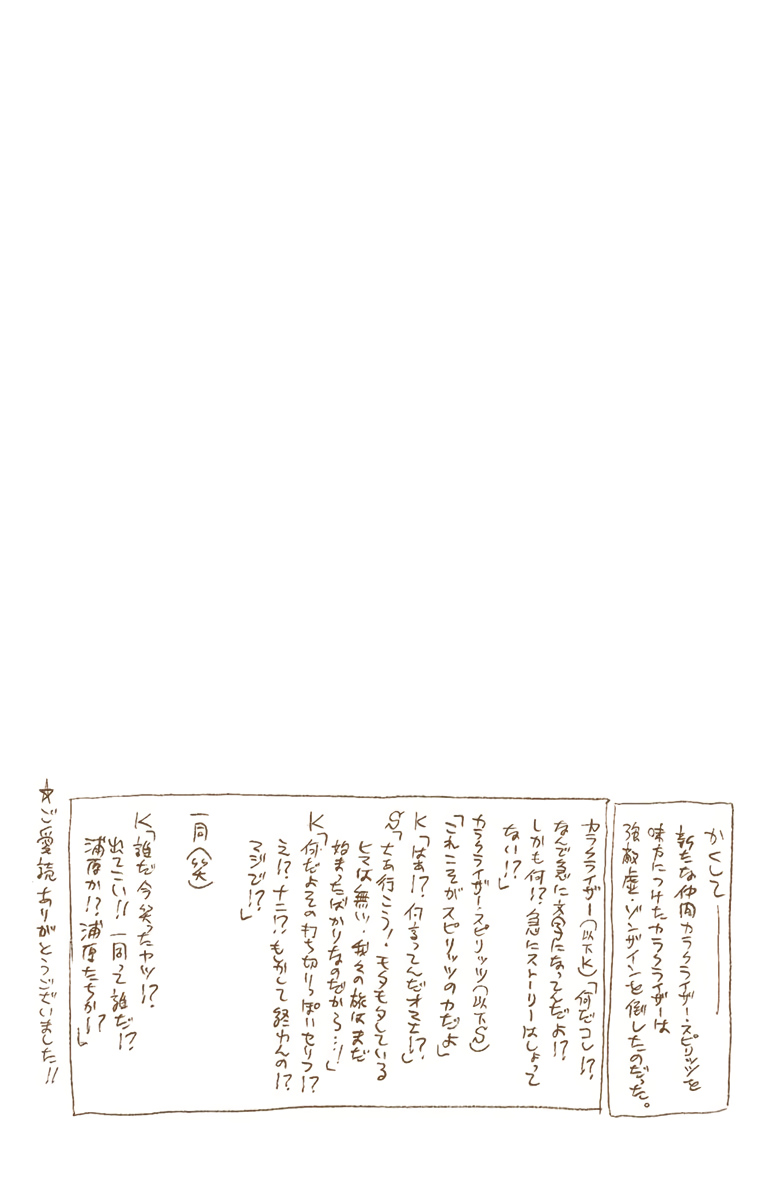 かくして―――
新たな仲間カラクライザー・スピリッツを
味方につけたカラクライザーは
強敵虚・ゾンザインを倒したのだった。
カラクライザー(以下K)「何だコレ!?
なんで急に文字になってんだよ!?
しかも何!?急にストーリーはしょって
ない!?」
カラクライザー・スピリッツ(以下S)
「これこそがスピリッツの力だよ」
K「はあ!?何言ってんだオマエ!?」
S「さあ行こう!モタモタしている
ヒマは無い、我々の旅はまだ
始まったばかりなのだから…!」
K「何だよその打ち切りっぽいセリフ!?
え!?ナニ!?もしかして終わんの!?
マジで!?」
一同(笑)
K「誰だ今笑ったヤツ!?
出てこい!!一同って誰だ!?
浦原か!?浦原たちか!?」
☆ご愛読ありがとうございました!!